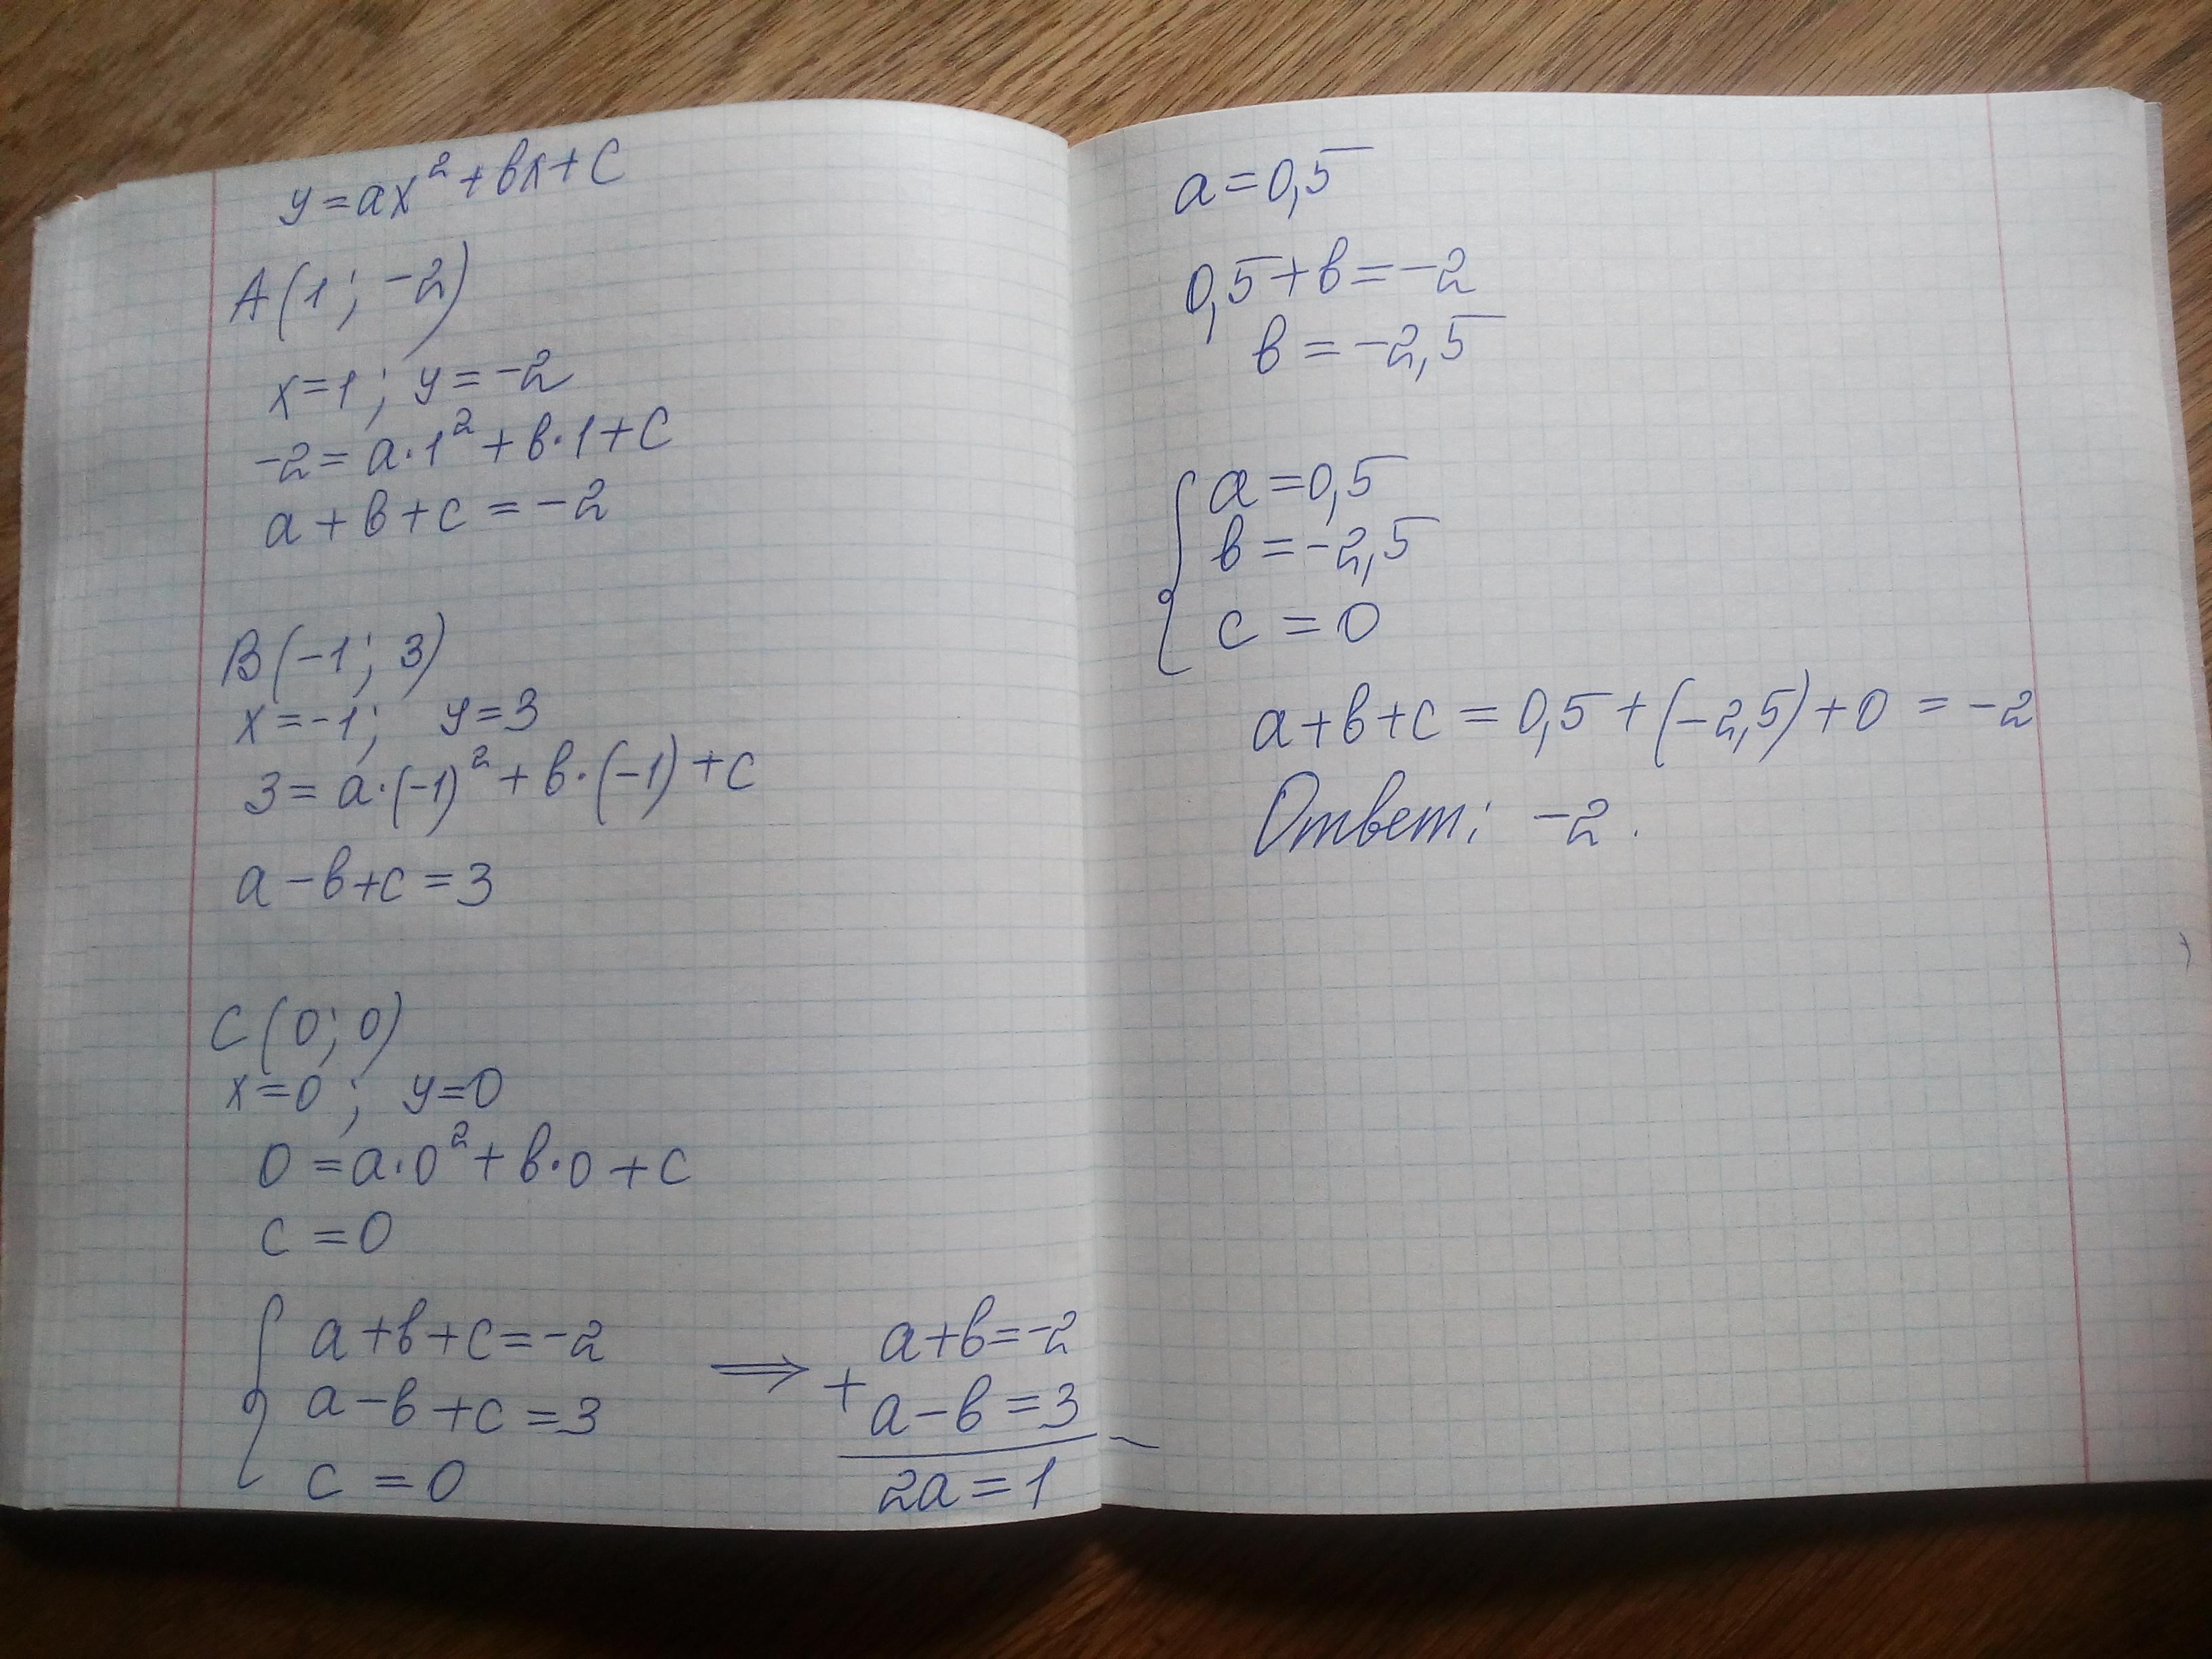 y=ax²+bx+c
A(1; -2)
x=1; y=-2
-2=a·1²+b·1+c
a+b+c=-2
B(-1; 3)
x=-1; y=3
3=a·(-1)²+b·(-1)+c
a-b+c=3
C(0; 0)
x=0; y=0
0=a·0²+b·0+c
c=0
{a+b+c=-2
a-b+c=3
c=0
⟹
+ a+b=-2
a-b=3
2a=1
a=0,5
0,5+b=-2
b=-2,5
{a=0,5
b=-2,5
c=0
a+b+c=0,5+(-2,5)+0=-2
Ответ: -2.